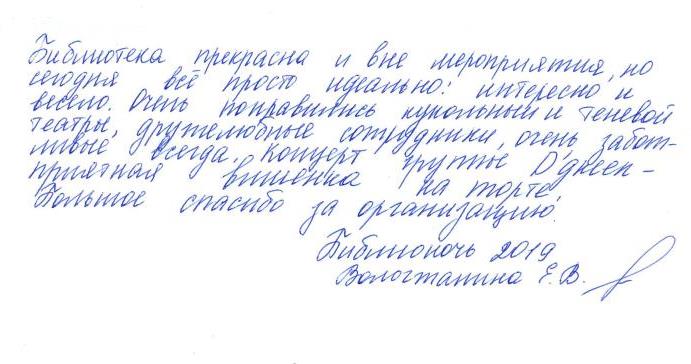 Библиотека прекрасна и вне мероприятия, но
сегодня всё просто идеально: интересно и
весело. Очень понравились кукольный и теневой
театры, дружелюбные сотрудники, очень забот-
ливые всегда. Концерт группы D'green –
приятная вишенка на торте!
Большое спасибо за организацию!
Библионочь 2019
Вологжанина Е.В.